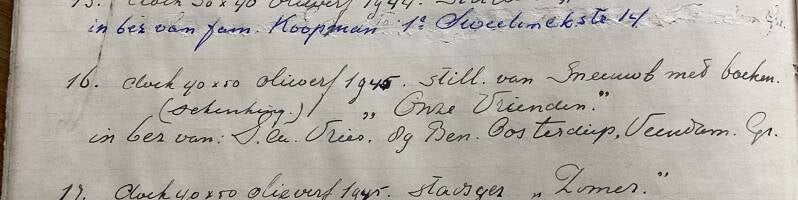 15. doek 50 x 40 olieverf 1944.
in bez van fam. Koopman 1e Sweelinckstr 14
16. doek 40 x 50 olieverf 1945. still. van Sneeuwb met boeken.
(schenking.) „ Onze Vrienden."
in bez van: S. de Vries. 89 Ben. Oosterdiep, Veendam. Gr.
17. doek 40 x 50 olieverf 1945. „ Zomer."